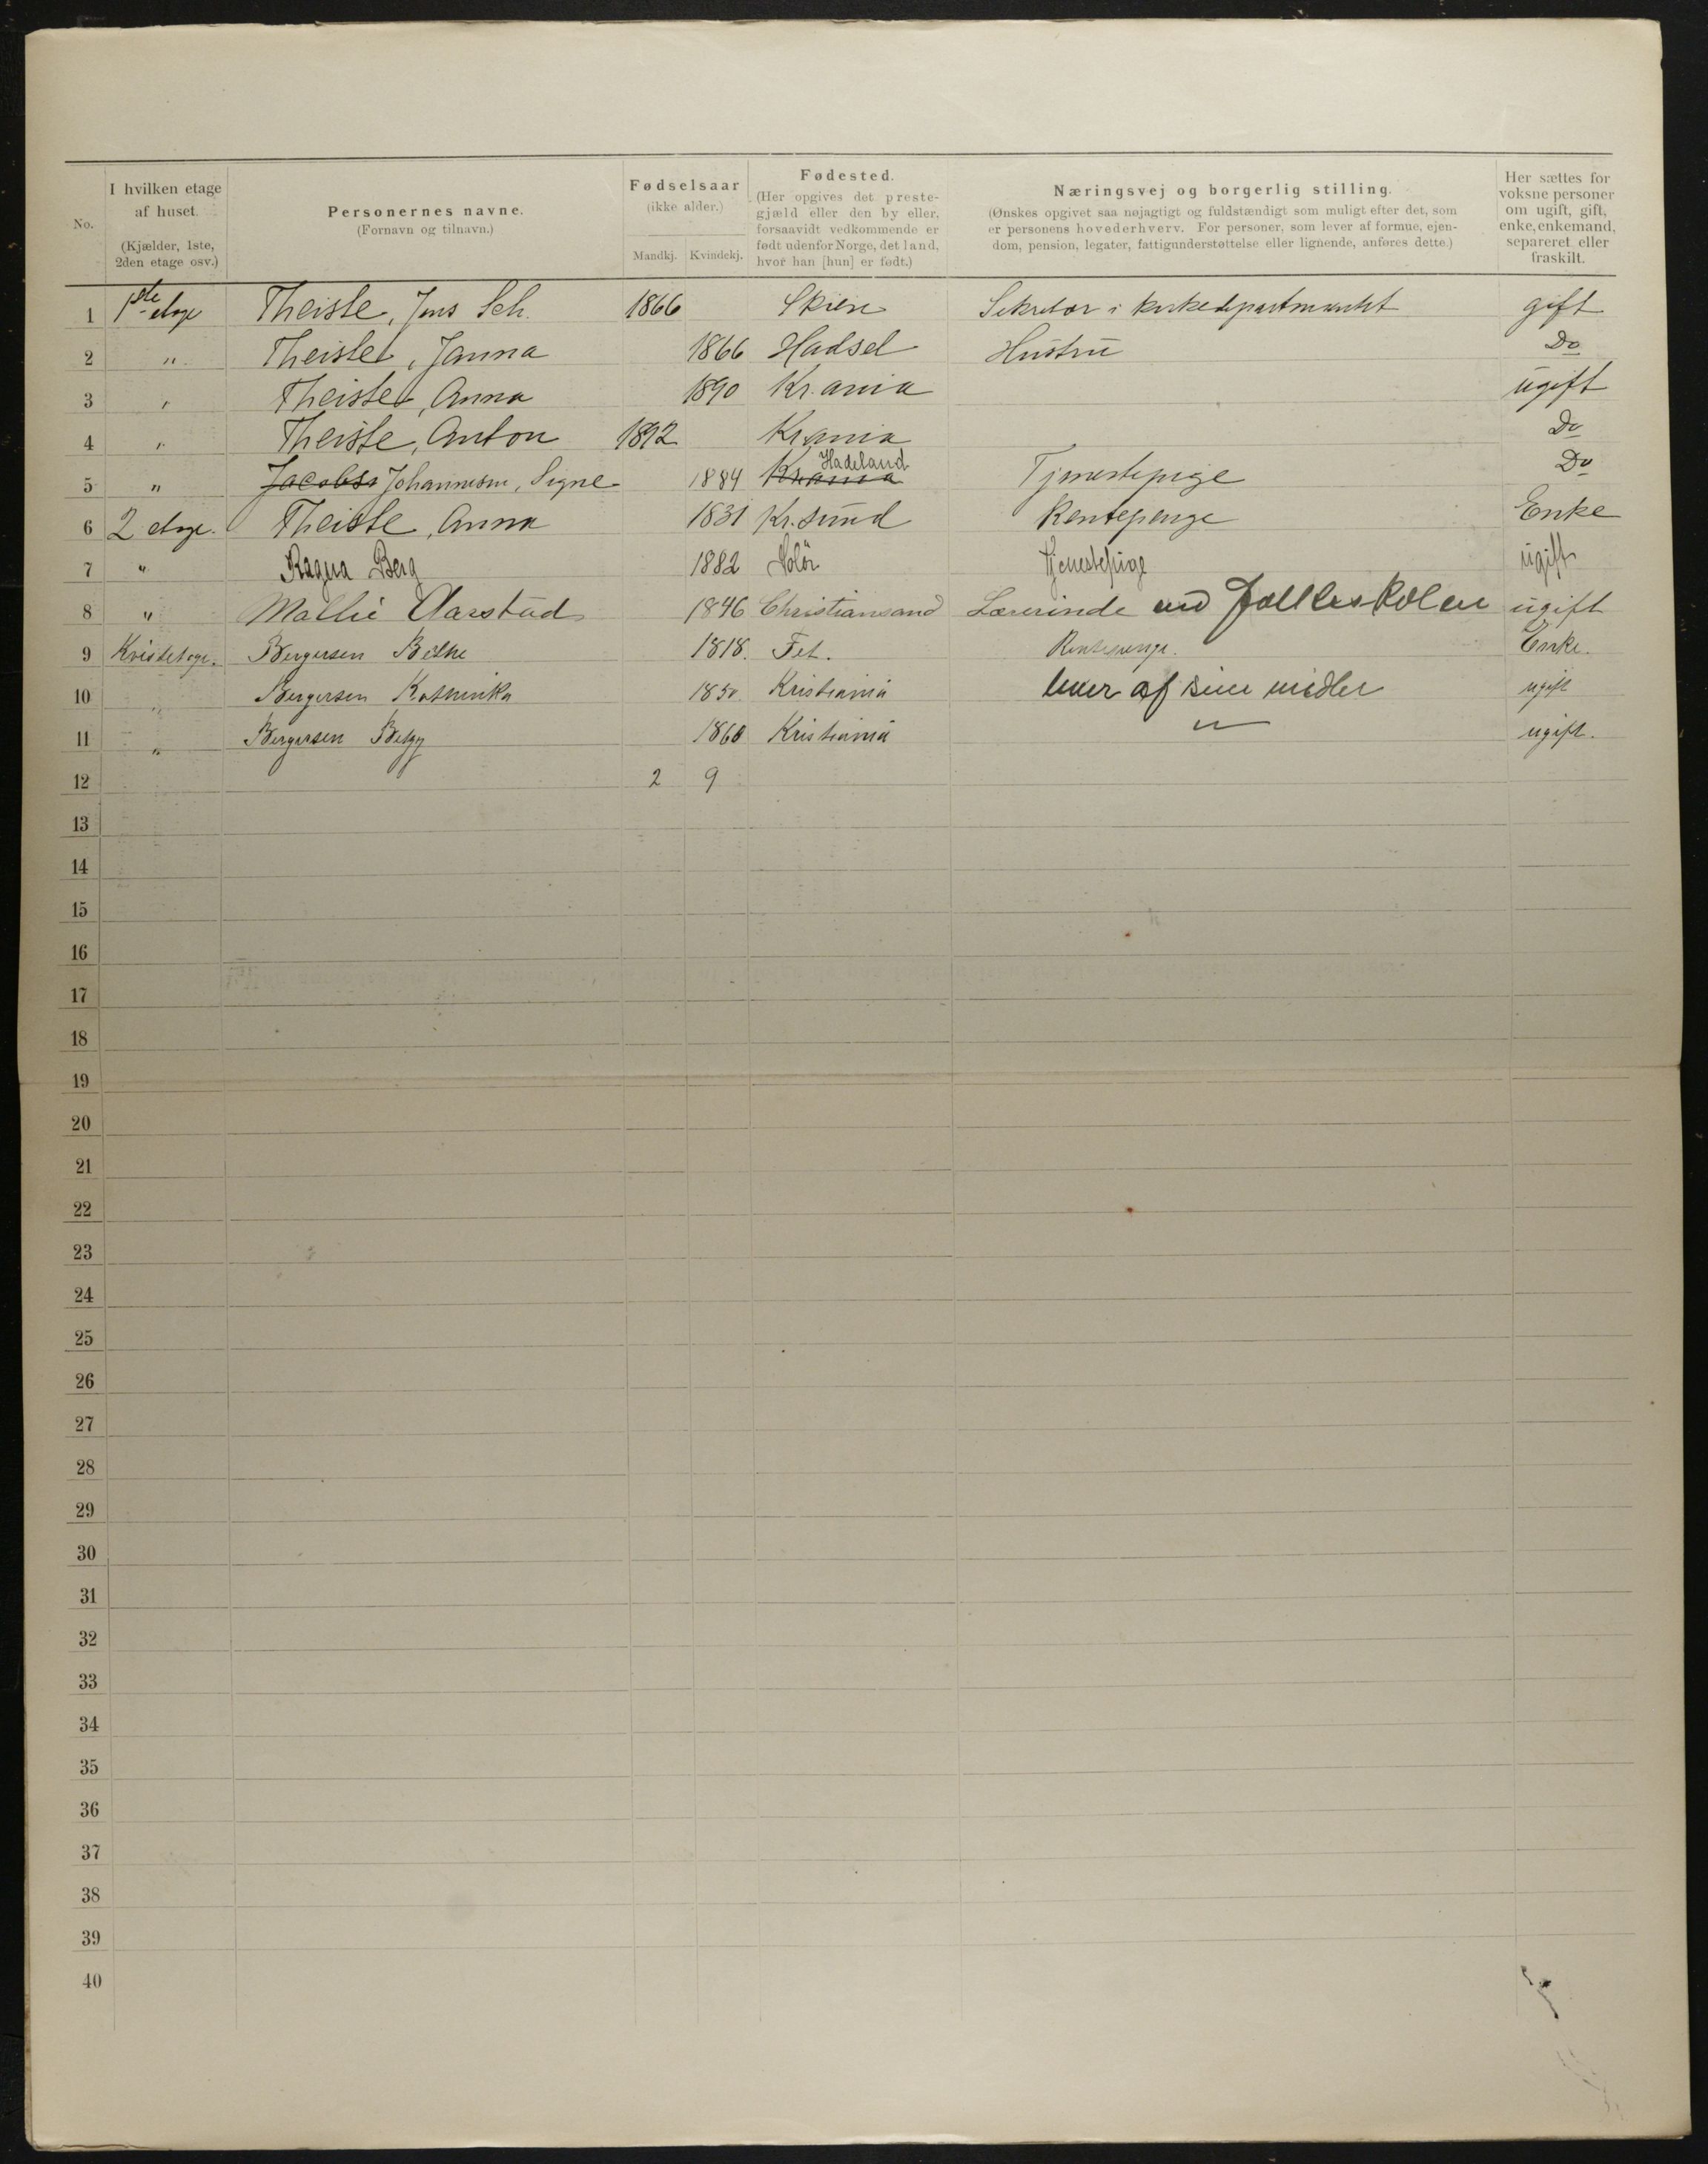 No.
I hvilken etage af huset. (Kjælder, 1ste, 2den etage osv.)
Personernes navne. (Fornavn og tilnavn.)
Fødselsaar (ikke alder.) Mandkj. Kvindekj.
Fødested. (Her opgives det prestegjæld eller den by eller, forsaavidt vedkommende er født udenfor Norge, det land, hvor han [hun] er født.)
Næringsvej og borgerlig stilling. (Ønskes opgivet saa nøjagtigt og fuldstændigt som muligt efter det, som er personens hovederhverv. For personer, som lever af formue, ejendom, pension, legater, fattigunderstøttelse eller lignende, anføres dette.)
Her sættes for voksne personer om ugift, gift, enke, enkemand, separeret eller fraskilt.
1 1ste etage Theiste, Jens Sch. 1866 Skien Sekretær i kirkedepartmentet gift
2 " Theiste, Janna 1866 Hadsel Hustru Do
3 " Theiste, Anna 1890 Kr.ania ugift
4 " Theiste, Anton 1892 Kr.ania Do
5 " Jacobs Johannesen, Signe 1884 Krania Hadeland Tjenestepige Do
6 2 etage. Theiste, Anna 1831 Kr.sund Rentepenge Enke
7 " Ragna Berg 1882 Solör Tjenestepige ugift
8 " Mallie Aarstad 1846 Christiansand Lærerinde ved Folkeskolen ugift
9 Kvistetage. Bergersen 1818. Fet. Rentepenge. Enke.
10 " Bergersen 1850. Kristiania lever af sine midler ugift
11 " Bergersen Betzy 1860 Kristiania " ugift.
12 2 9
13
14
15
16
17
18
19
20
21
22
23
24
25
26
27
28
29
30
31
32
33
34
35
36
37
38
39
40